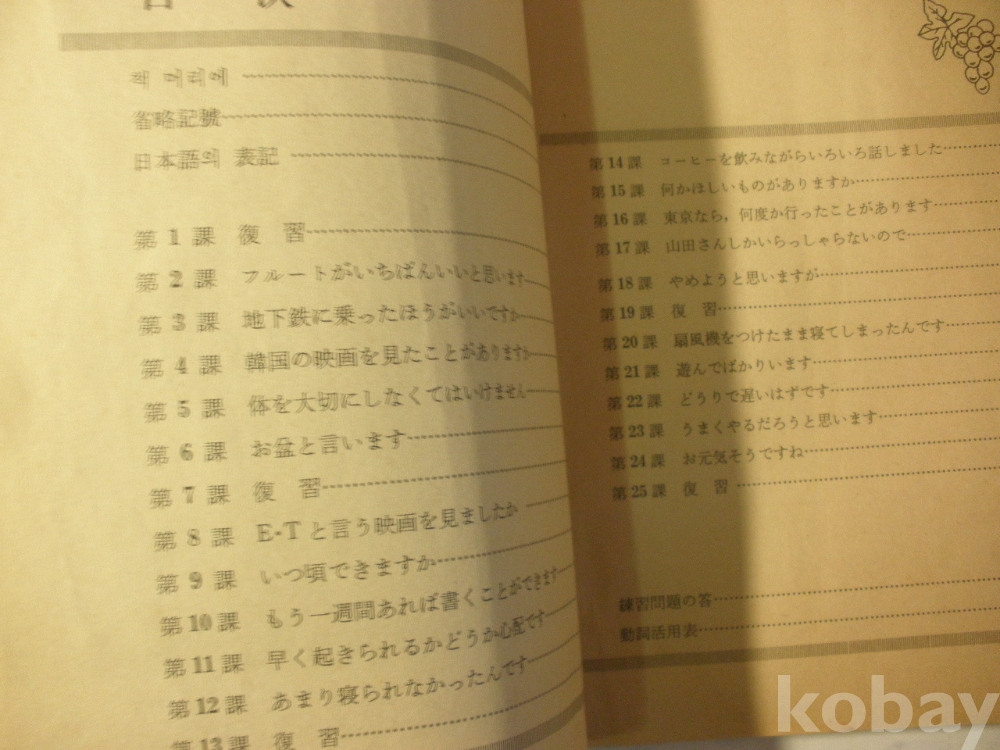 目 次
책 머리에
省略記號
日本語의 表記
第 1 課 復 習
第 2 課 フルートがいちばんいいと思います
第 3 課 地下鉄に乗ったほうがいいですか
第 4 課 韓国の映画を見たことがありますか
第 5 課 体を大切にしなくてはいけません
第 6 課 お盆と言います
第 7 課 復 習
第 8 課 E-Tと言う映画を見ましたか
第 9 課 いつ頃できますか
第10課 もう一週間あれば書くことができます
第11課 早く起きられるかどうか心配です
第12課 あまり寝られなかったんです
第13課 復 習
第14課 コーヒーを飲みながらいろいろ話しました
第15課 何かほしいものがありますか
第16課 東京なら，何度か行ったことがあります
第17課 山田さんしかいらっしゃらないので
第18課 やめようと思いますが
第19課 復 習
第20課 扇風機をつけたまま寝てしまったんです
第21課 遊んでばかりいます
第22課 どうりで遅いはずです
第23課 うまくやるだろうと思います
第24課 お元気そうですね
第25課 復 習
練習問題の答
動詞活用表
kobay